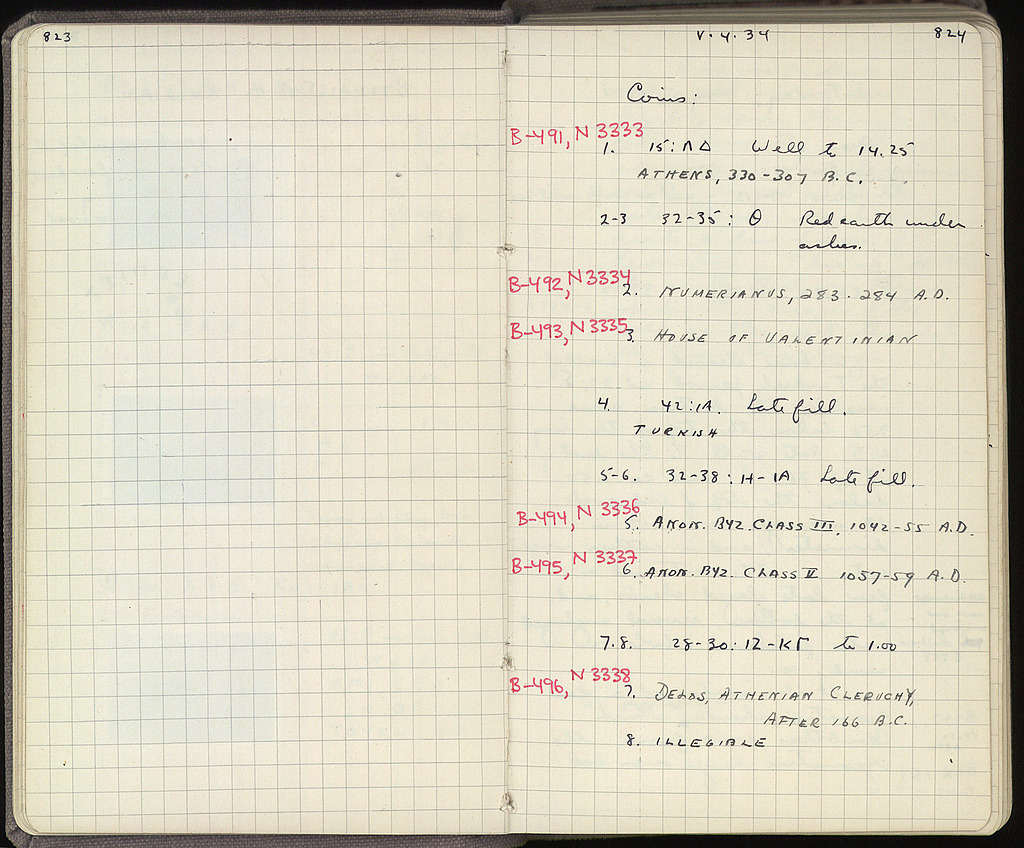 823
V.4.34 824
Coins:
B-491, N 3333
1. 15:ΛΔ Well to 14.25
ATHENS, 330-307 B.C.
2-3 32-35: Θ Red earth under
ashes.
B-492, N 3334
2. NUMERIANUS, 283-284 A.D.
B-493, N 3335
3. HOUSE OF VALENTINIAN
4. 42:ΙΑ. Late fill.
TURKISH
5-6. 32-38: Η-ΙΑ Late fill.
B-494, N 3336
5. ANON. BYZ. CLASS III. 1042-55 A.D.
B-495, N 3337
6. ANON. BYZ. CLASS II 1057-59 A.D.
7.8. 28-30: ΙΖ-ΚΓ to 1.00
B-496, N 3338
7. DELOS, ATHENIAN CLERUCHY,
AFTER 166 B.C.
8. ILLEGIBLE